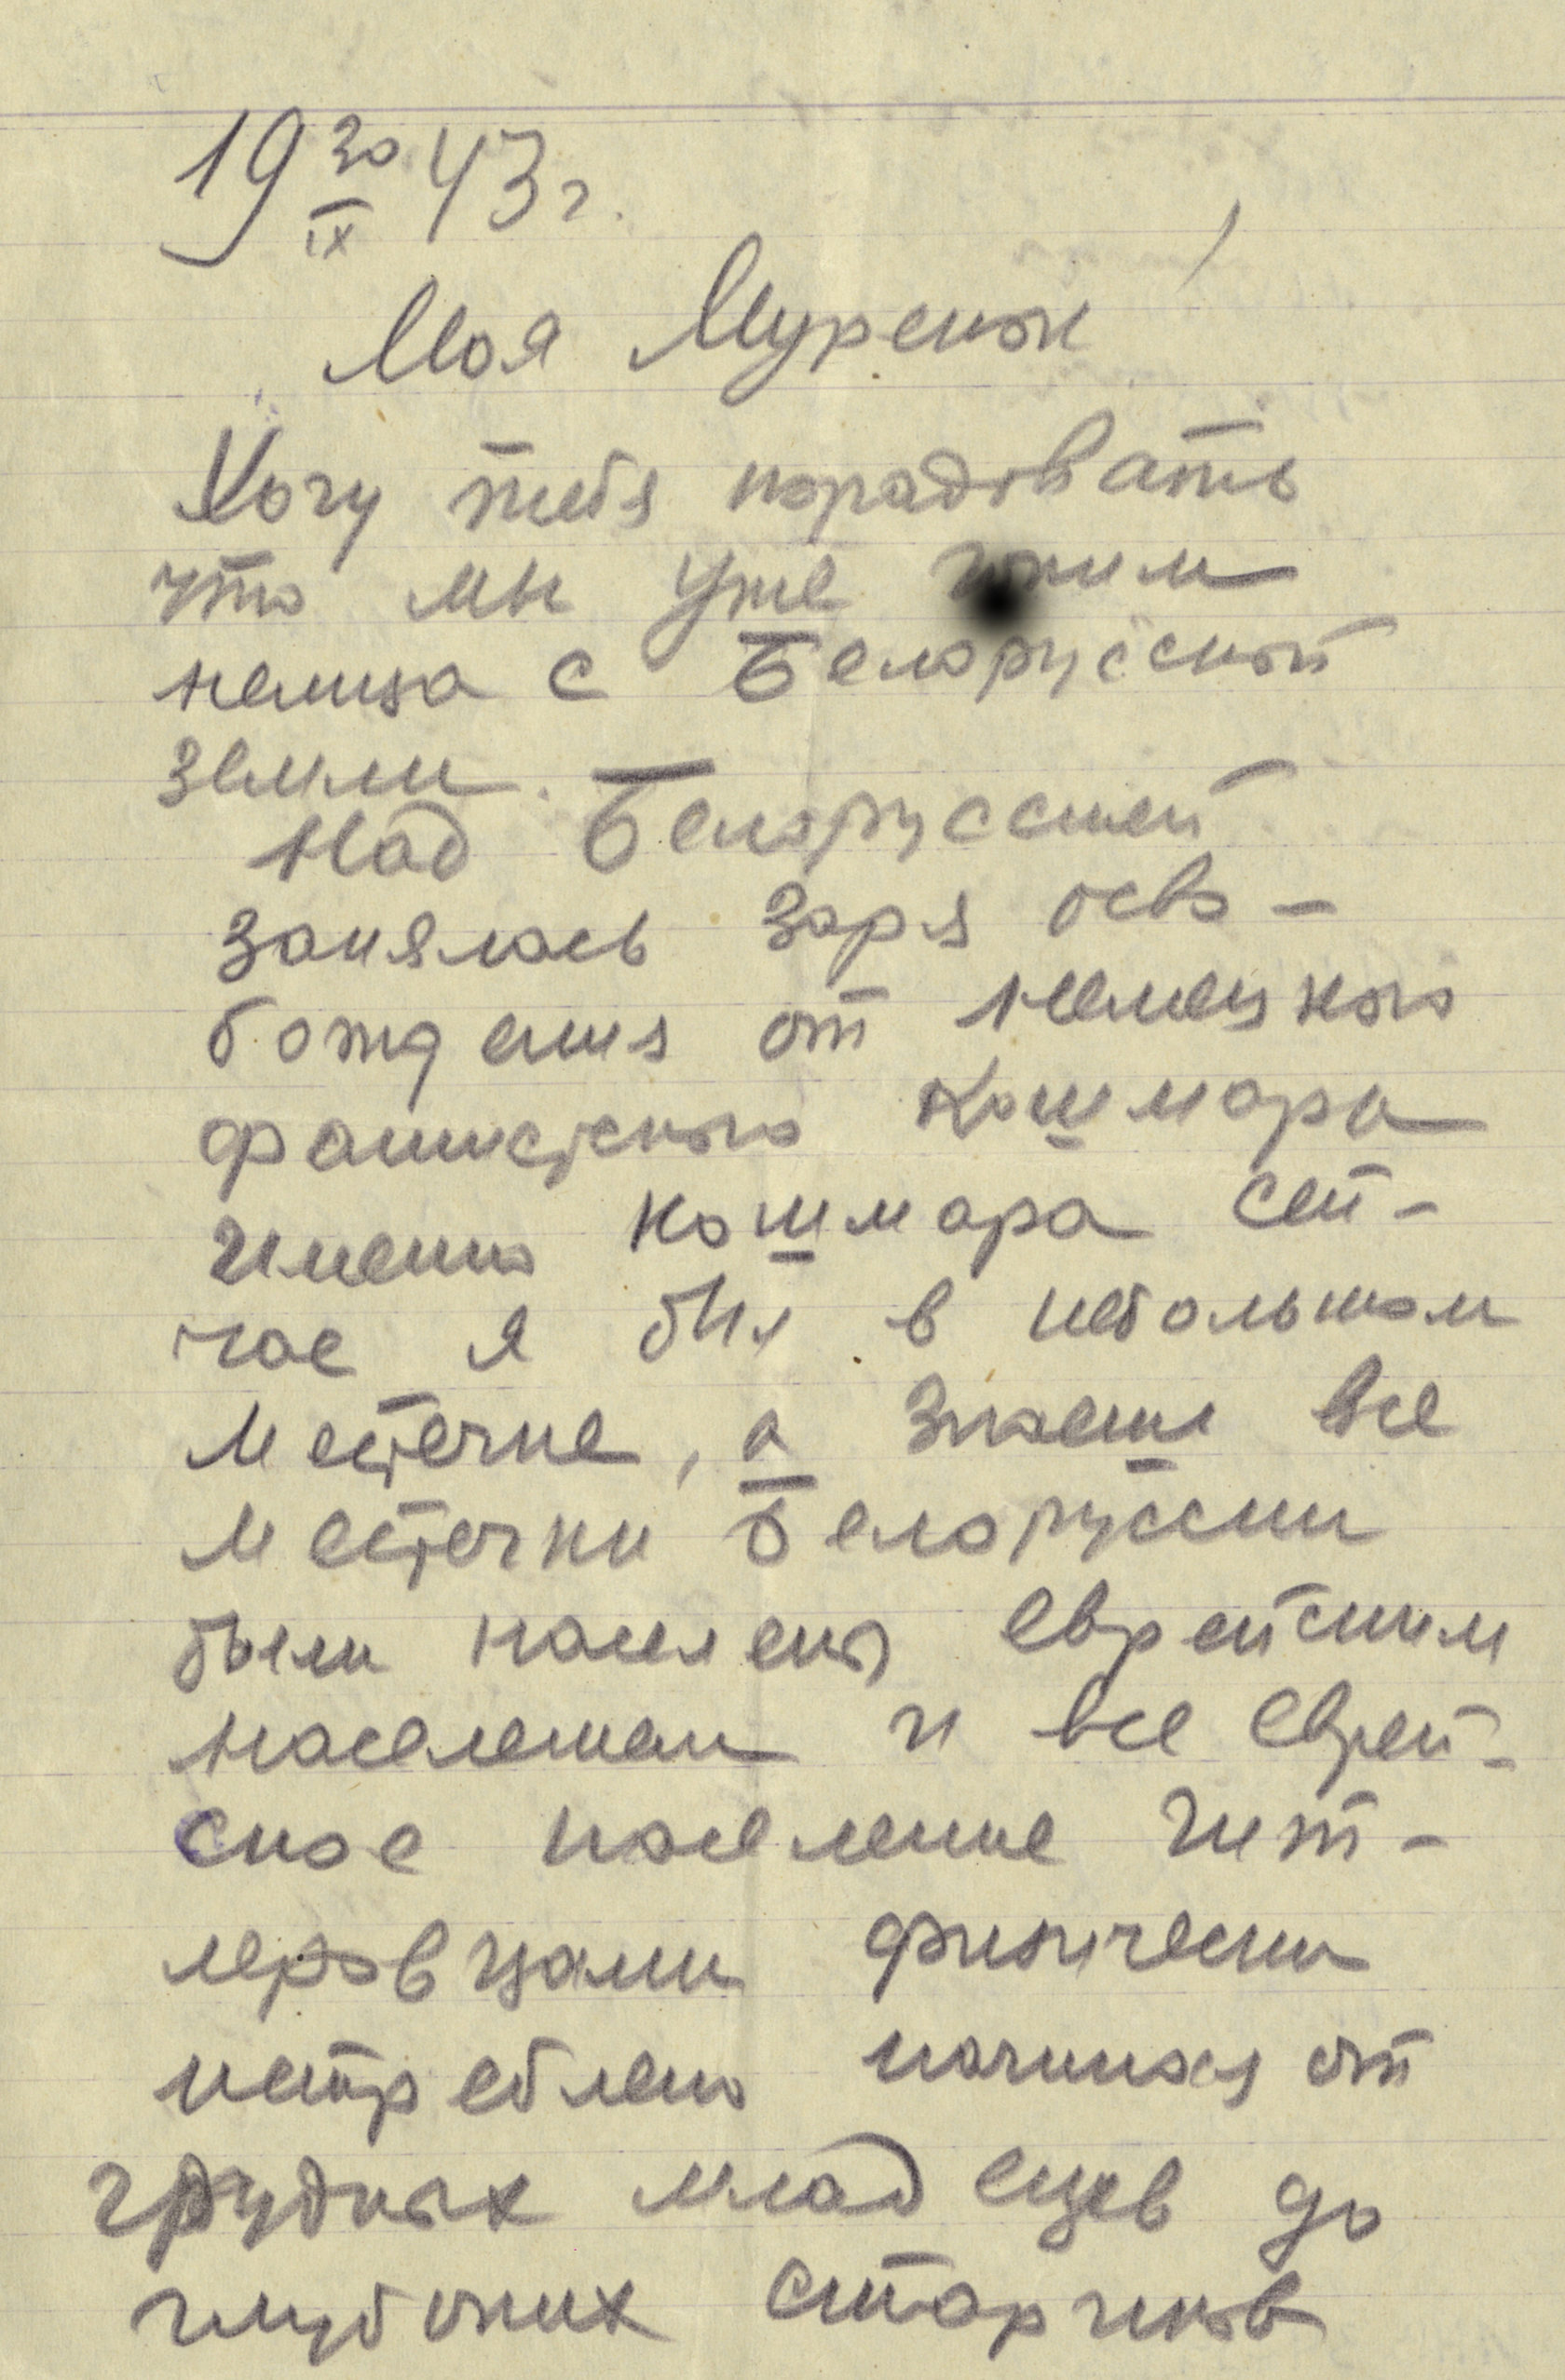 19 30/IX 43 г.
Моя Муренок!
Хочу тебя порадовать
что мы уже гоним
немца с Белорусской
земли.
Над Белоруссией
занялась заря осво-
бождения от немецкого
фашистского кошмара
Именно кошмара сей-
час я был в небольшом
местечке, а знаеш все
местечки Белоруссии
были населены еврейским
населением и все еврей-
ское население гит-
леровцами физически
истреблено начиная от
грудных младенцев до
глубоких стариков